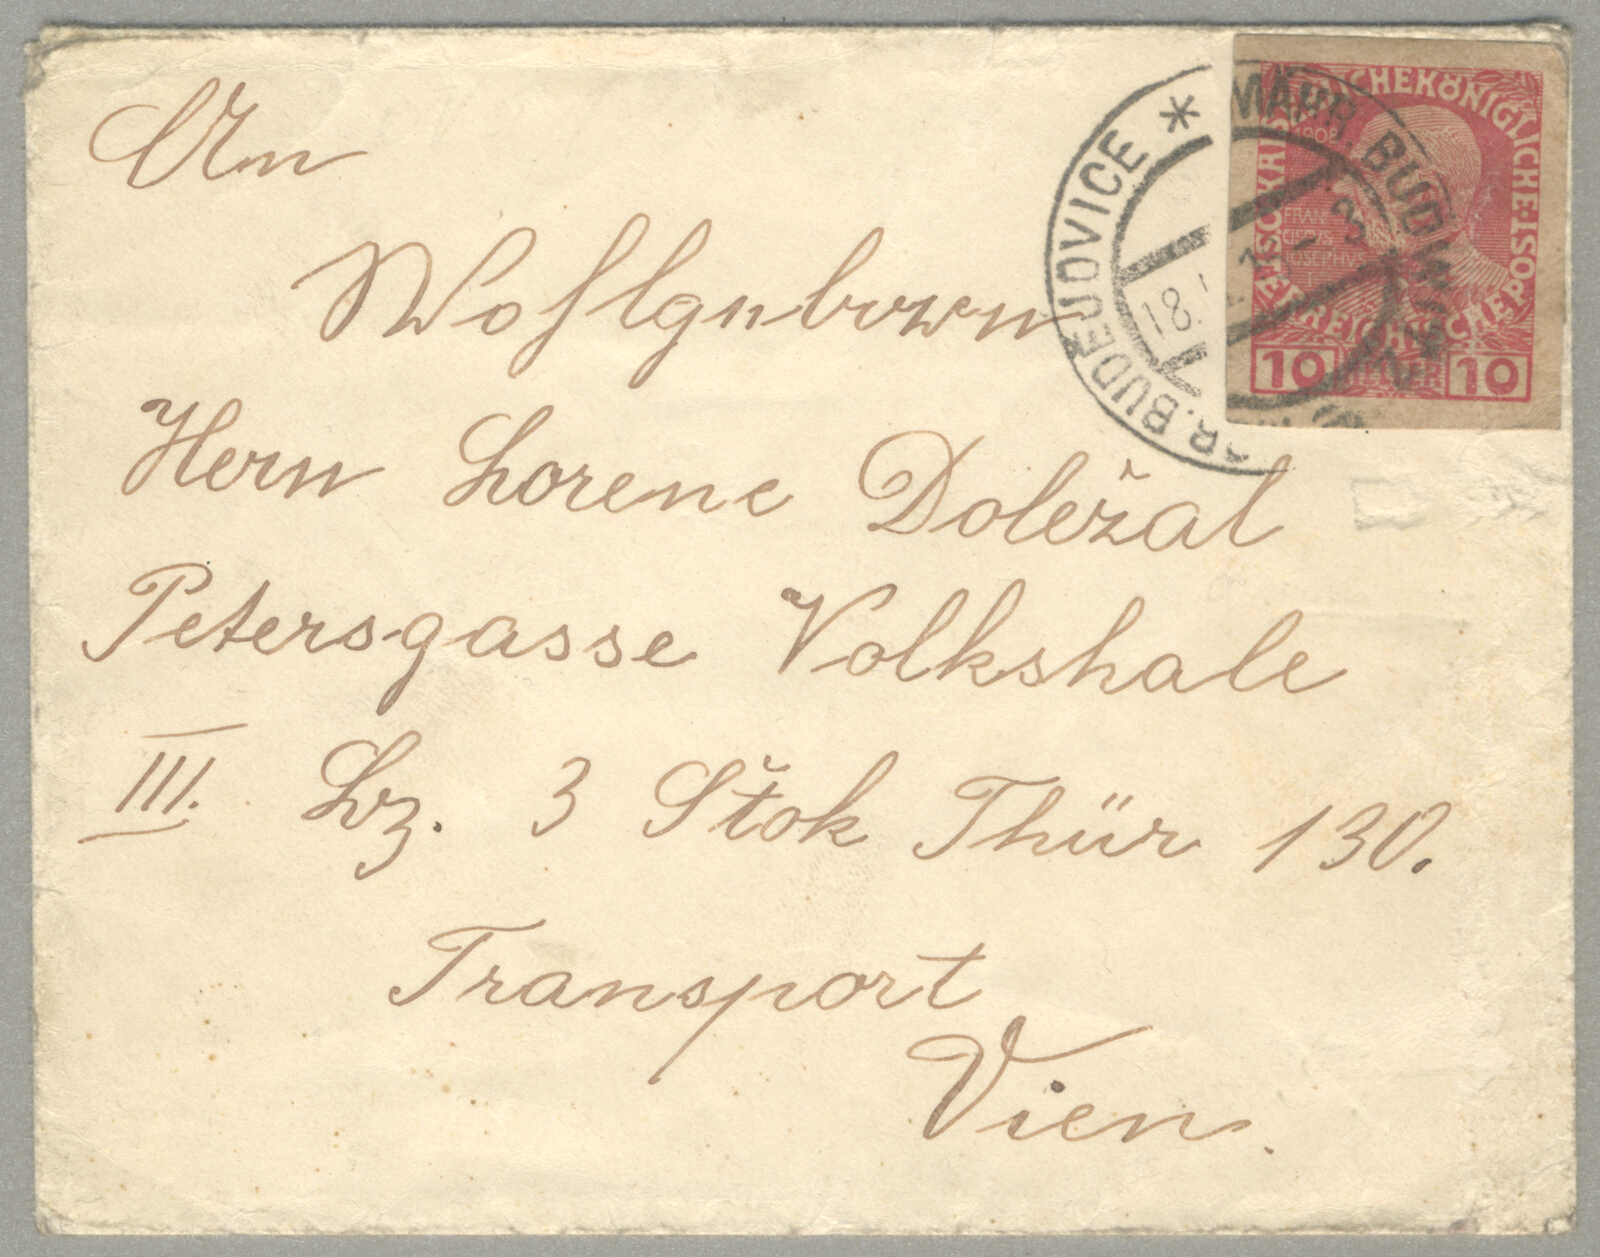 An
Wohlgeboren
Herrn Lorenc Doležal
Petersgasse Volkshale
III. Lz. 3 Štok Thür 130.
Transport
Vien.
MÄHR. BUDWITZ
* MOR. BUDEJOVICE
18.
KAISERLICHEKÖNIGLICHE ÖSTERREICHISCHE POST
1908
FRAN
CISCVS
IOSEPHVS
10 HELLER 10